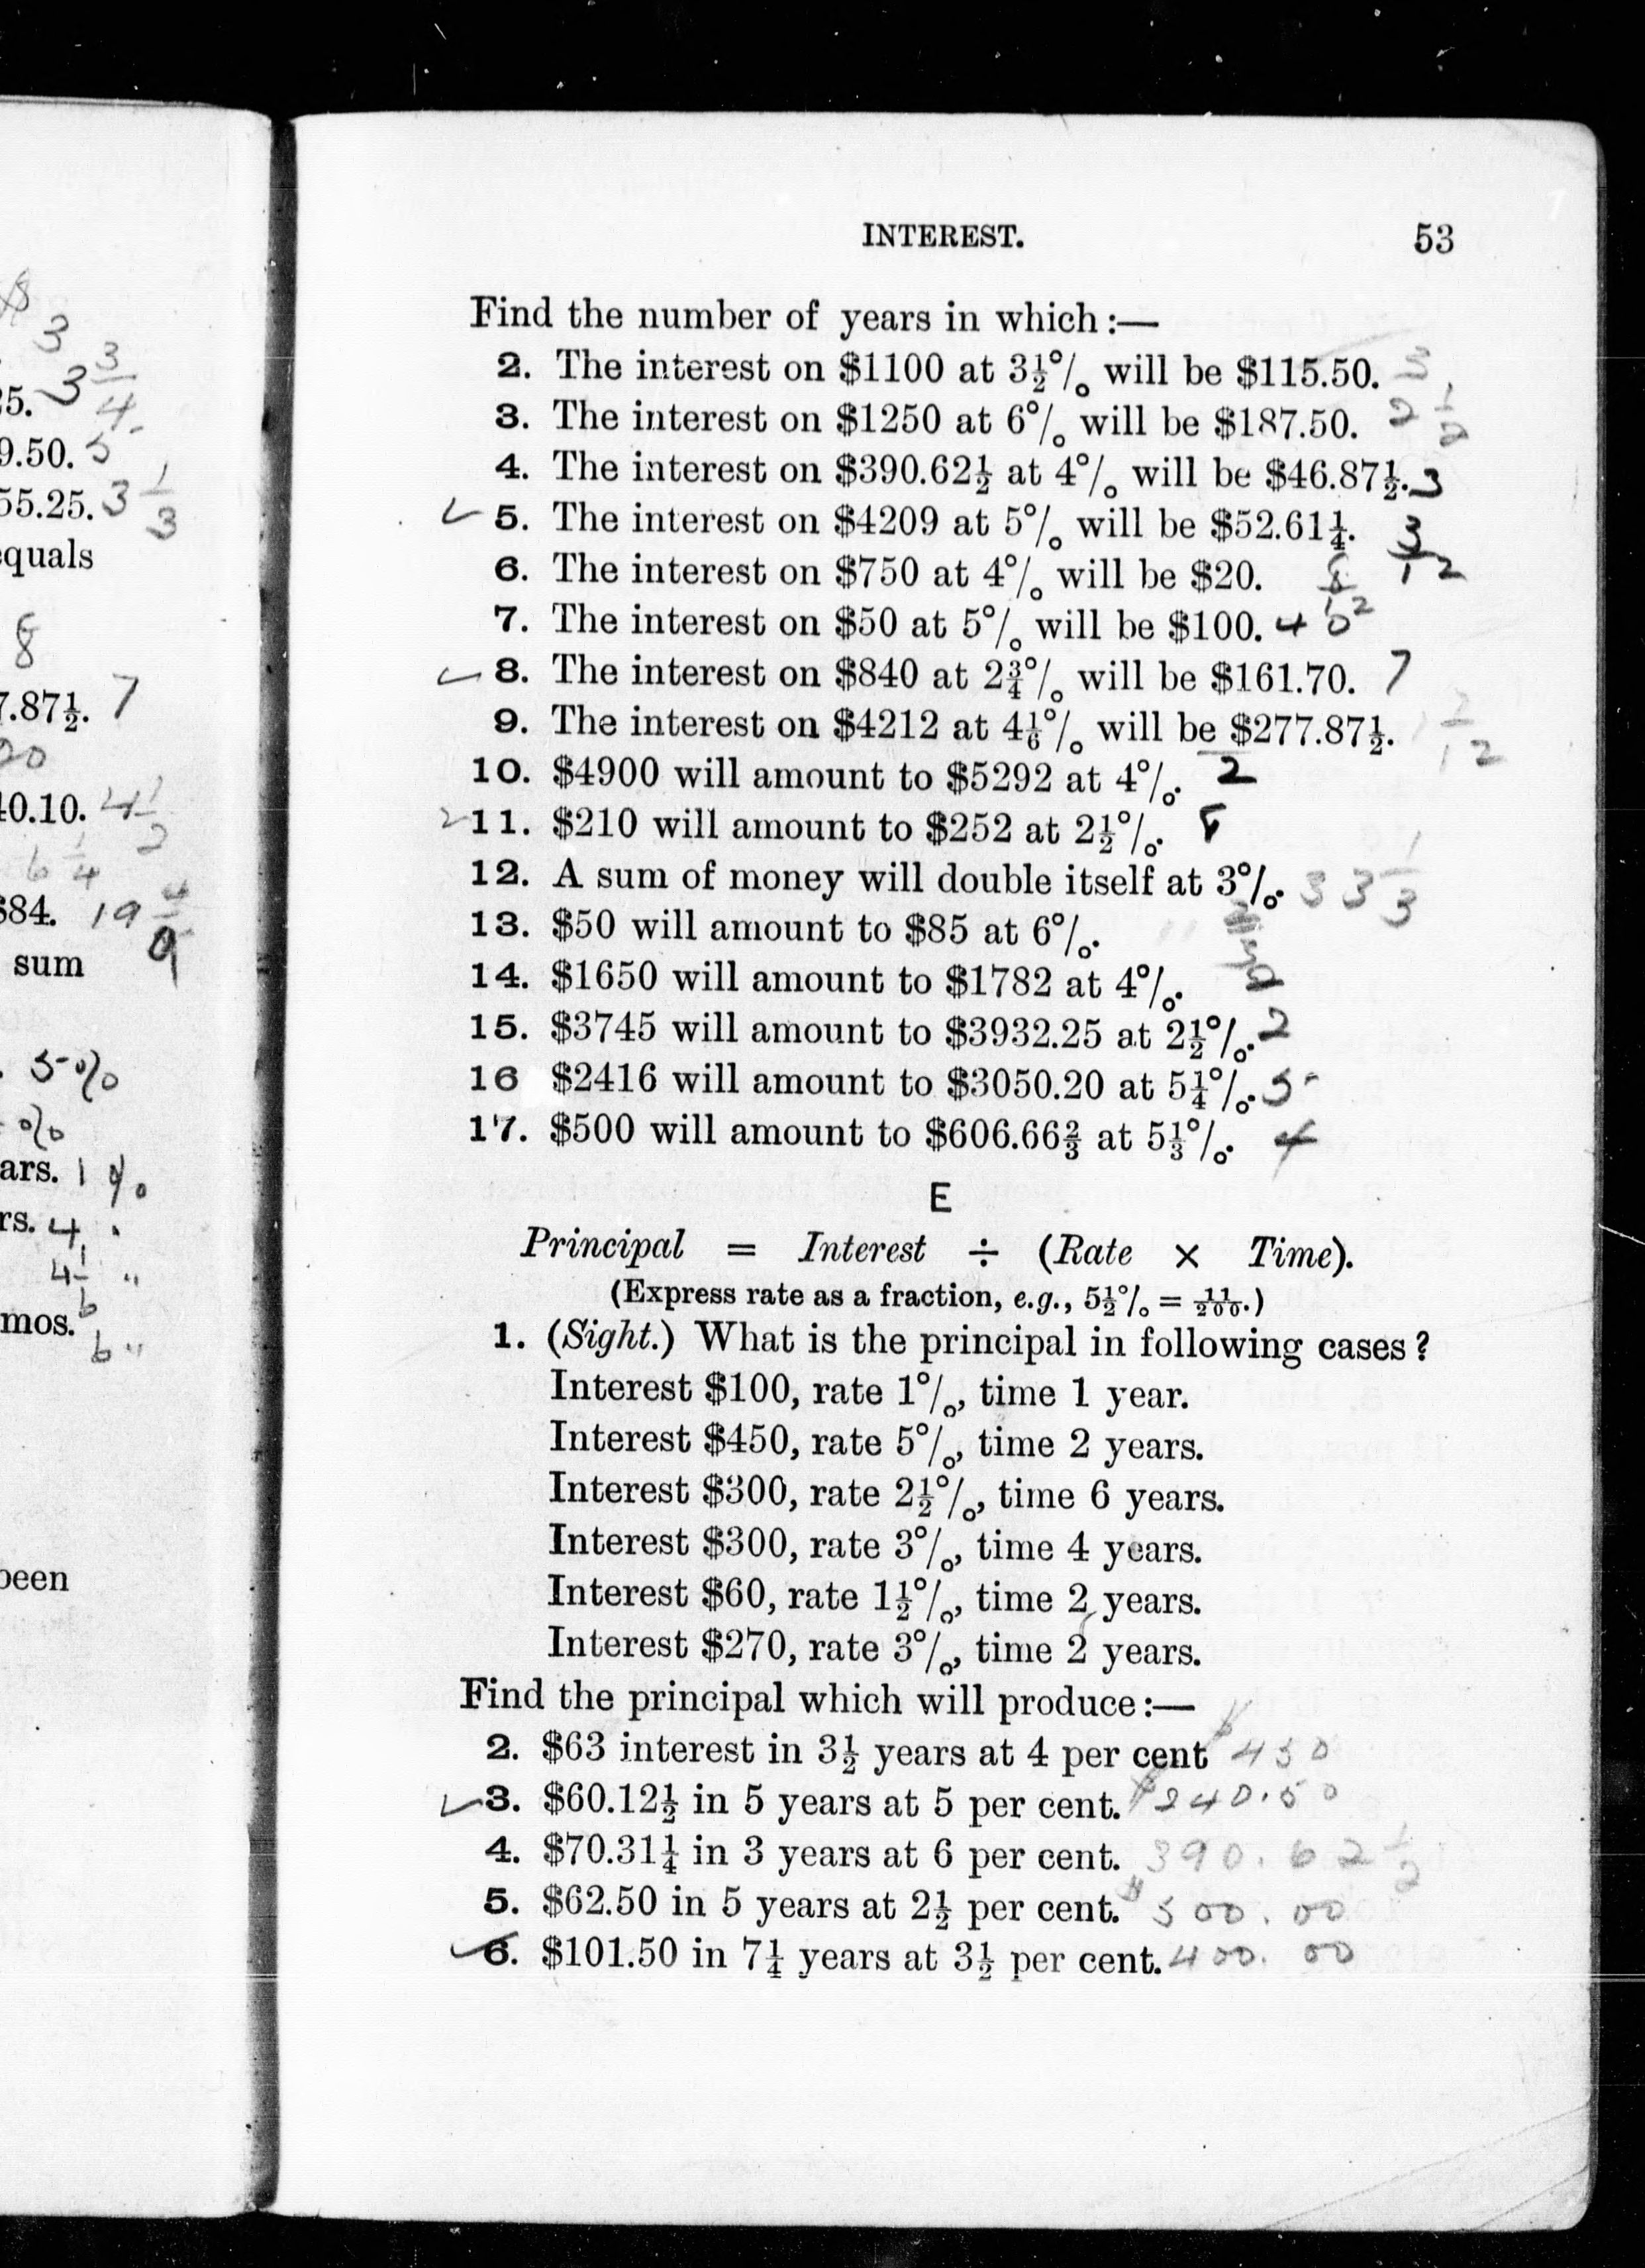 3
5. 3 3/4
9.50. 5
55.25. 3 1/3
equals
8
7.87½. 7
20
40.10. 4 1/2
6 1/4
$84. 19 4/9
sum
. 5%
%
ars. 1 %
rs. 4
4 1/6 "
mos.
6 "
been
INTEREST. 53
Find the number of years in which :—
2. The interest on $1100 at 3½% will be $115.50. 3
3. The interest on $1250 at 6% will be $187.50. 2 1/2
4. The interest on $390.62½ at 4% will be $46.87½. 3
✓ 5. The interest on $4209 at 5% will be $52.61¼. 3/12
6. The interest on $750 at 4% will be $20. 8/12
7. The interest on $50 at 5% will be $100. 40
✓ 8. The interest on $840 at 2¾% will be $161.70. 7
9. The interest on $4212 at 4⅙% will be $277.87½. 1 7/12
10. $4900 will amount to $5292 at 4%. 2
11. $210 will amount to $252 at 2½%. 8
12. A sum of money will double itself at 3%. 33 1/3
13. $50 will amount to $85 at 6%.
14. $1650 will amount to $1782 at 4%. 2
15. $3745 will amount to $3932.25 at 2½%. 2
16 $2416 will amount to $3050.20 at 5¼%. 5
17. $500 will amount to $606.66⅔ at 5⅓%. 4
E
Principal = Interest ÷ (Rate × Time).
(Express rate as a fraction, e.g., 5½% = 11/200.)
1. (Sight.) What is the principal in following cases?
Interest $100, rate 1%, time 1 year.
Interest $450, rate 5%, time 2 years.
Interest $300, rate 2½%, time 6 years.
Interest $300, rate 3%, time 4 years.
Interest $60, rate 1½%, time 2 years.
Interest $270, rate 3%, time 2 years.
Find the principal which will produce :—
2. $63 interest in 3½ years at 4 per cent $450
✓ 3. $60.12½ in 5 years at 5 per cent. $240.50
4. $70.31¼ in 3 years at 6 per cent. 390.62 1/2
5. $62.50 in 5 years at 2½ per cent. $500.00
✓ 6. $101.50 in 7¼ years at 3½ per cent. 400.00